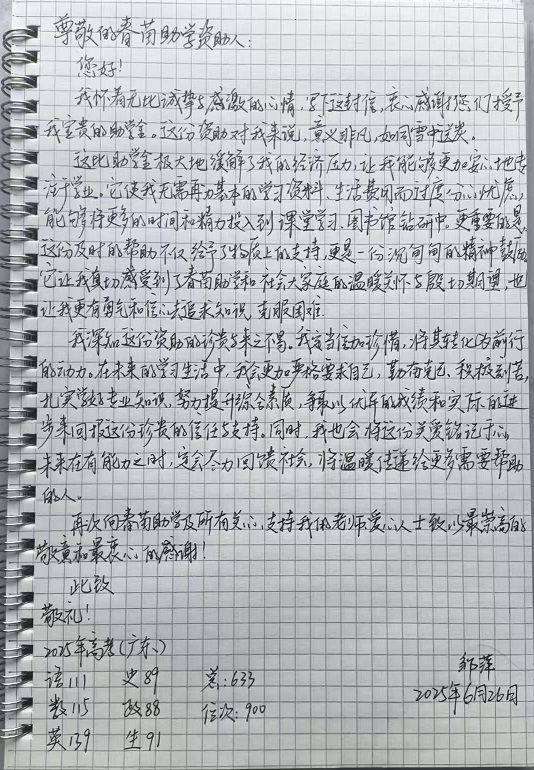 尊敬的春苗助学资助人:
您好!
我怀着无比诚挚与感激的心情,写下这封信,衷心感谢您们授予
我宝贵的助学金。这份资助对我来说,意义非凡,如同雪中送炭。
这比助学金极大地缓解了我的经济压力,让我能够更加安心地专
注于学业。它使我无需再为基本的学习资料、生活费用而过度分心忧虑,
能够将更多的时间和精力投入到课堂学习、图书馆钻研中。更重要的是,
这份及时的帮助不仅给予了物质上的支持,更是一份沉甸甸的精神鼓励。
它让我真切感受到了春苗助学和社会大家庭的温暖关怀与殷切期望,也
让我更有勇气和信心去追求知识,克服困难.
我深知这份资助的珍贵与来之不易。我定当倍加珍惜,将其转化为前行
的动力。在未来的学习生活中,我会更加严格要求自己,勤奋克己、积极刻苦,
扎实学好专业知识,努力提升综合素质,争取以优异的成绩和实际的进
步来回报这份珍贵的信任与支持。同时,我也会将这份关爱铭记于心,
未来在有能力之时,定会尽力回馈社会,将温暖传递给更多需要帮助
的人。
再次向春苗助学及所有关心、支持我们的老师爱心人士致以最崇高的
敬意和最衷心的感谢!
此致
敬礼!
2025年高考(广东)
语111 史89 总:633
数115 政88 位次:900
英139 生91
邹萍
2025年6月26日